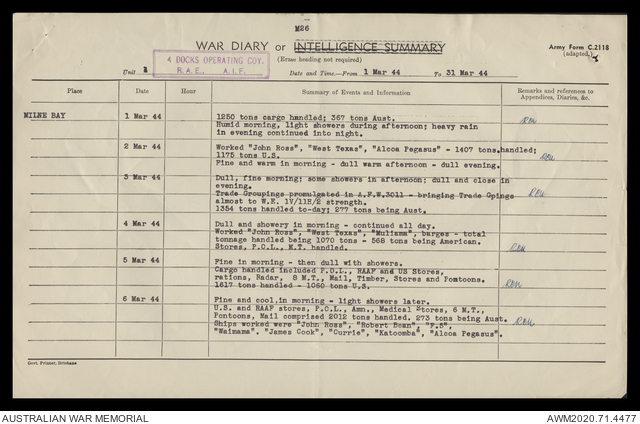 M26
WAR DIARY or INTELLIGENCE SUMMARY
(Erase heading not required)
Army Form C.2118
(adapted.)
4 DOCKS OPERATING COY.
R.A.E., A.I.F.
Unit
Date and Time.—From 1 Mar 44 To 31 Mar 44
Place Date Hour Summary of Events and Information Remarks and references to
Appendices, Diaries, &c.
MILNE BAY 1 Mar 44 1250 tons cargo handled; 367 tons Aust.
Humid morning, light showers during afternoon; heavy rain
in evening continued into night.
2 Mar 44 Worked "John Ross", "West Texas", "Alcoa Pegasus" - 1407 tons handled;
1175 tons U.S.
Fine and warm in morning - dull warm afternoon - dull evening.
3 Mar 44 Dull, fine morning; some showers in afternoon; dull and close in
evening.
Trade Groupings promulgated in A.F.W.3011 - bringing Trade Gpings
almost to W.E. 1V/11H/2 strength.
1354 tons handled to-day; 277 tons being Aust.
4 Mar 44 Dull and showery in morning - continued all day.
Worked "John Ross", "West Texas", "Muliama", barges - total
tonnage handled being 1070 tons - 568 tons being American.
Stores, P.O.L., M.T. handled.
5 Mar 44 Fine in morning - then dull with showers.
Cargo handled included P.O.L., RAAF and US Stores,
rations, Radar, 8 M.T., Mail, Timber, Stores and Pontoons.
1617 tons handled - 1060 tons U.S.
6 Mar 44 Fine and cool,in morning - light showers later.
U.S. and RAAF stores, P.O.L., Amn., Medical Stores, 6 M.T.,
Pontoons, Mail comprised 2012 tons handled. 273 tons being Aust.
Ships worked were "John Ross", "Robert Bean", "F.S"
"Waimama". "James Cook", "Currie", "Katoomba", "Alcoa Pegasus".
Govt. Printer, Brisbane
AUSTRALIAN WAR MEMORIAL
AWM2020.71.4477